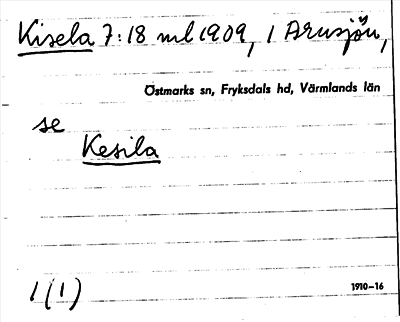 Kisela 7:18 ml 1909, 1 Arusjön,
Östmarks sn, Fryksdals hd, Värmlands län
se
Kesila
1(1)
1910-16